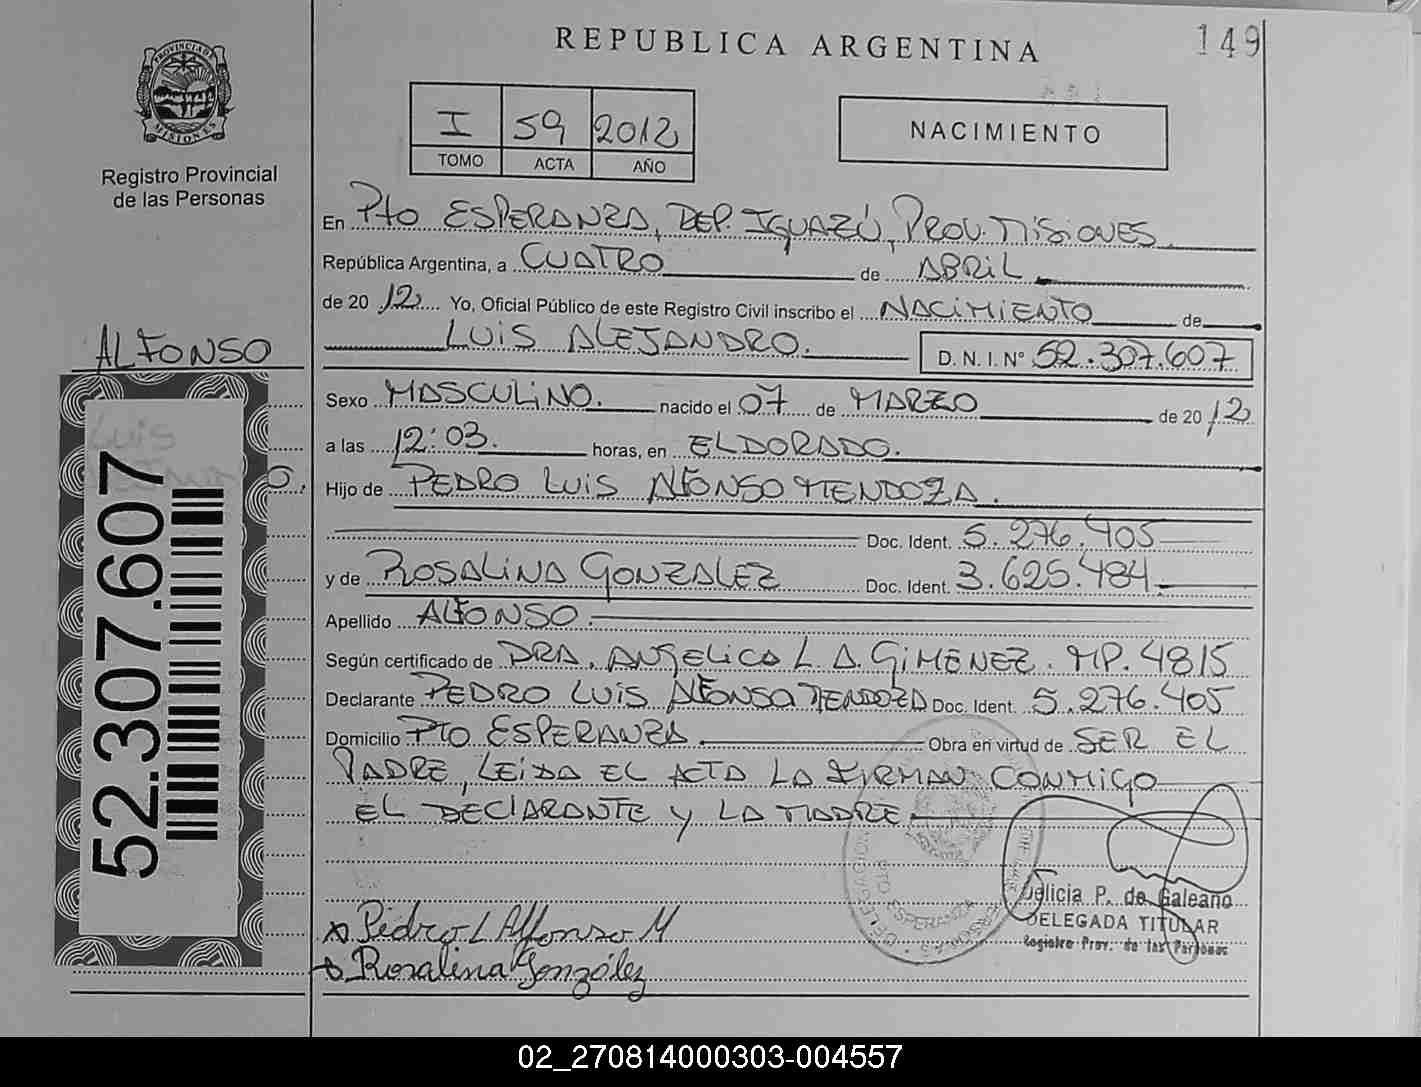 REPUBLICA ARGENTINA
149
PROVINCIA DE
MISIONES
Registro Provincial
de las Personas
I 59 2012
TOMO ACTA AÑO
NACIMIENTO
En Pto ESPERANZA, DEP. IGUAZÚ, PROV. MISIONES
República Argentina, a CUATRO de ABRIL
de 20 12 Yo, Oficial Público de este Registro Civil inscribo el NACIMIENTO de
LUIS ALEJANDRO. D. N. I. Nº 52.307.607
ALFONSO
LUIS
52.307.607
Sexo MASCULINO. nacido el 07 de MARZO de 20 12
a las 12:03. horas, en ELDORADO.
Hijo de PEDRO LUIS ALFONSO MENDOZA.
Doc. Ident. 5.276.405
y de ROSALINA GONZALEZ Doc. Ident. 3.625.484
Apellido ALFONSO.
Según certificado de DRA. ANGELICA L. A. GIMENEZ. MP. 4815
Declarante PEDRO LUIS ALFONSO MENDOZA Doc. Ident. 5.276.405
Domicilio Pto ESPERANZA. Obra en virtud de SER EL
PADRE, LEIDA EL ACTA LA FIRMAN CONMIGO
EL DECLARANTE Y LA MADRE.
PTO ESPERANZA
Delicia P. de Galeano
DELEGADA TITULAR
Registro Prov. de las Personas
x Pedro L Alfonso M
x Rosalina González
02_270814000303-004557